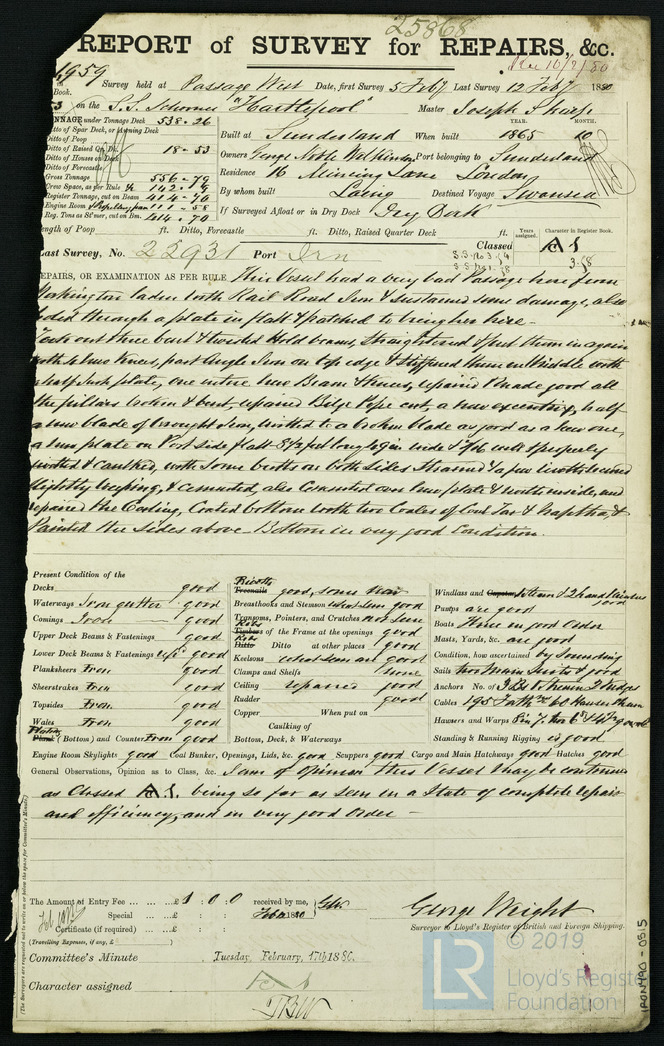 25868
REPORT of SURVEY for REPAIRS, &c.
1959 Survey held at Passage West Date, first Survey 5 Feby Last Survey 12 Feby 1880
on the S.S. Schooner "Hartlepool" Master Joseph
TONNAGE under Tonnage Deck 538.26
Ditto of Spar Deck, or Awning Deck
Ditto of Poop
Ditto of Raised Qr. Dk. 18-53
Ditto of Houses on Deck
Ditto of Forecastle
Gross Tonnage 556-79
Register Tonnage, cut on Beam 414-70
Reg. Tons as St'mer, cut on Bm. 414.70
YEAR. MONTH.
Built at Sunderland When built 1865 10
Owners George Noble Wilkinson Port belonging to Sunderland
Residence 16 Mincing Lane London
By whom built Laing Destined Voyage Swansea
If Surveyed Afloat or in Dry Dock Dry Dock
Length of Poop ft. Ditto, Forecastle ft. Ditto, Raised Quarter Deck ft.
Years assigned. Character in Register Book.
Last Survey, No. 22931 Port Irn Classed A1
REPAIRS, OR EXAMINATION AS PER RULE This Vessel had a very bad Passage here from
Workington laden with Rail Road Iron & sustained some damage, also
through a plate in flatt & patched to bring her here.
Took out three bent & twisted Hold beams, Straightened & put them in again
with new Knees, part Angle Iron on top edge & stiffened them in Middle with
half Inch plate, one entire new Beam & Knees, repaired & made good all
the pillars broken & bent, repaired Bilge Pipe cut, a new excentric, half
a new blade of wrought Iron, rivitted to a broken blade as good as a new one,
a new plate on Port side flatt 8½ feet long wide & well & properly
rivitted & caulked, with some butts on both sides strained & a few rivetts
slightly weeping, & cemented, also Cemented over new plate & rivetts inside, and
repaired the Ceiling, Coated bottom with two Coates of Coal Tar & Naptha, &
Painted the sides above - Bottom in very good Condition.
Present Condition of the
Decks good
Waterways Iron gutter good
Comings Iron good
Upper Deck Beams & Fastenings good
Lower Deck Beams & Fastenings good
Planksheers Iron good
Sheerstrakes Iron good
Topsides Iron good
Wales Iron good
Plating Plank (Bottom) and Counter Iron good
Rivetts Treenails good, some new
Breasthooks and Stemson what seen good
Transoms, Pointers, and Crutches not seen
Ribs Timbers of the Frame at the openings good
Ribs Ditto Ditto at other places good
Keelsons what seen are good
Clamps and Shelfs none
Ceiling repaired good
Rudder good
Copper When put on
Caulking of
Bottom, Deck, & Waterways
Windlass and Capstan Steam & 2 hand Winches good
Pumps are good
Boats Three in good Order
Masts, Yards, &c. are good
Condition, how ascertained by Sounding
Sails two Main Suits & good
Anchors No. of 3 Brs Stream 2 Kedges
Cables 195 Fath
Hawsers and Warps
Standing & Running Rigging is good
Engine Room Skylights good Coal Bunker, Openings, Lids, &c. good Scuppers good Cargo and Main Hatchways good Hatches good
General Observations, Opinion as to Class, &c. I am of opinion this Vessel may be continued
as Classed A1. being so far as seen in a State of complete repair
and efficiency, and in very good Order -
The Amount of Entry Fee ... £ 1 : 0 : 0 received by me, GW.
Special ... £ : : Feb 1880
Certificate (if required) ... £ : :
(Travelling Expenses, if any, £ )
George Wright
Surveyor to Lloyd's Register of British and Foreign Shipping.
Committee's Minute Tuesday, February, 17th 1880.
Character assigned A1
© 2019
LR
Lloyd's Register
Foundation
IRON490-0315